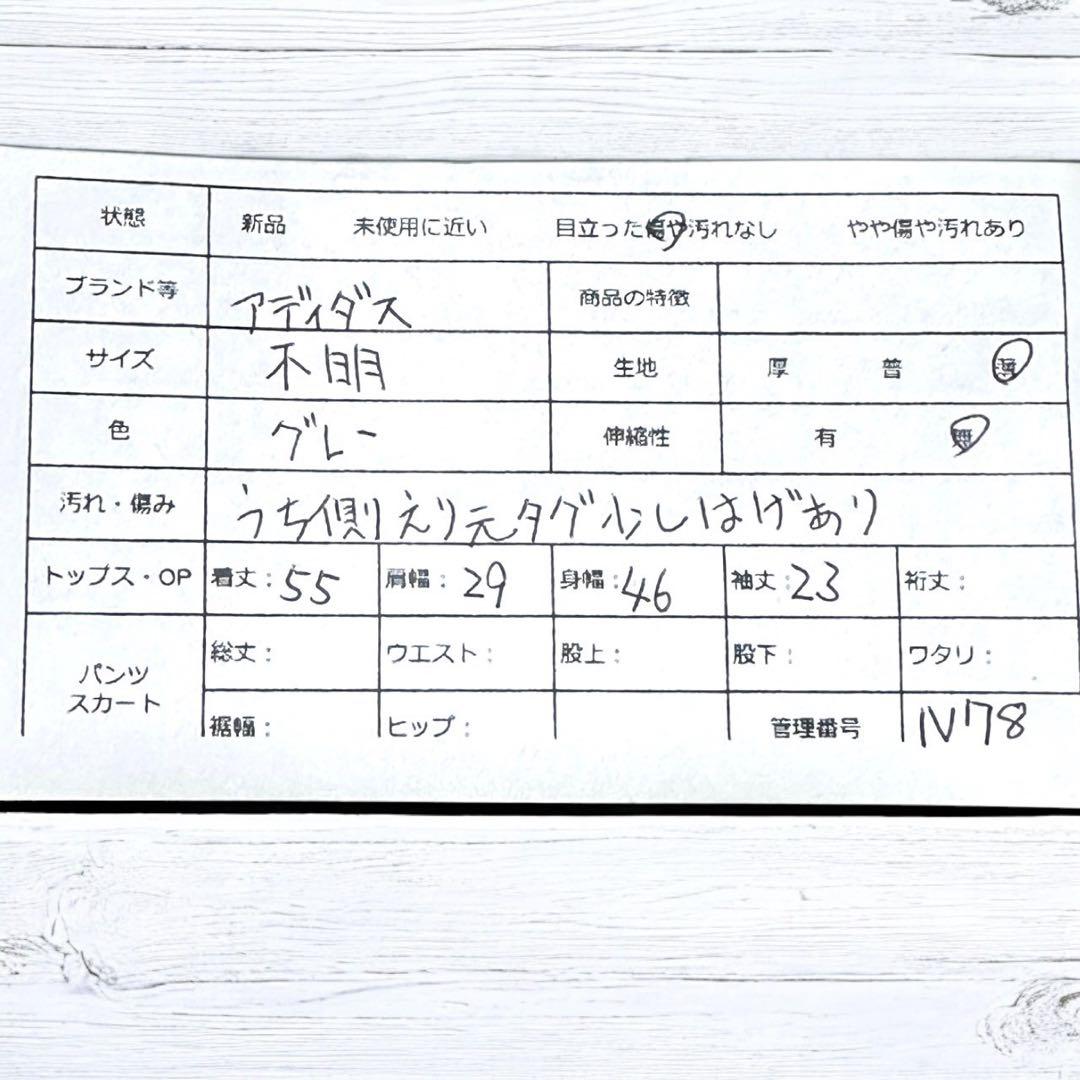 状態 新品 未使用に近い 目立った傷や汚れなし やや傷や汚れあり
ブランド等 アディダス 商品の特徴
サイズ 不明 生地 厚 普 薄
色 グレー 伸縮性 有 無
汚れ・傷み うち側えり元タグ少しはげあり
トップス・OP 着丈：55 肩幅：29 身幅：46 袖丈：23 裄丈：
パンツ
スカート
総丈： ウエスト： 股上： 股下： ワタリ：
裾幅： ヒップ： 管理番号 N78